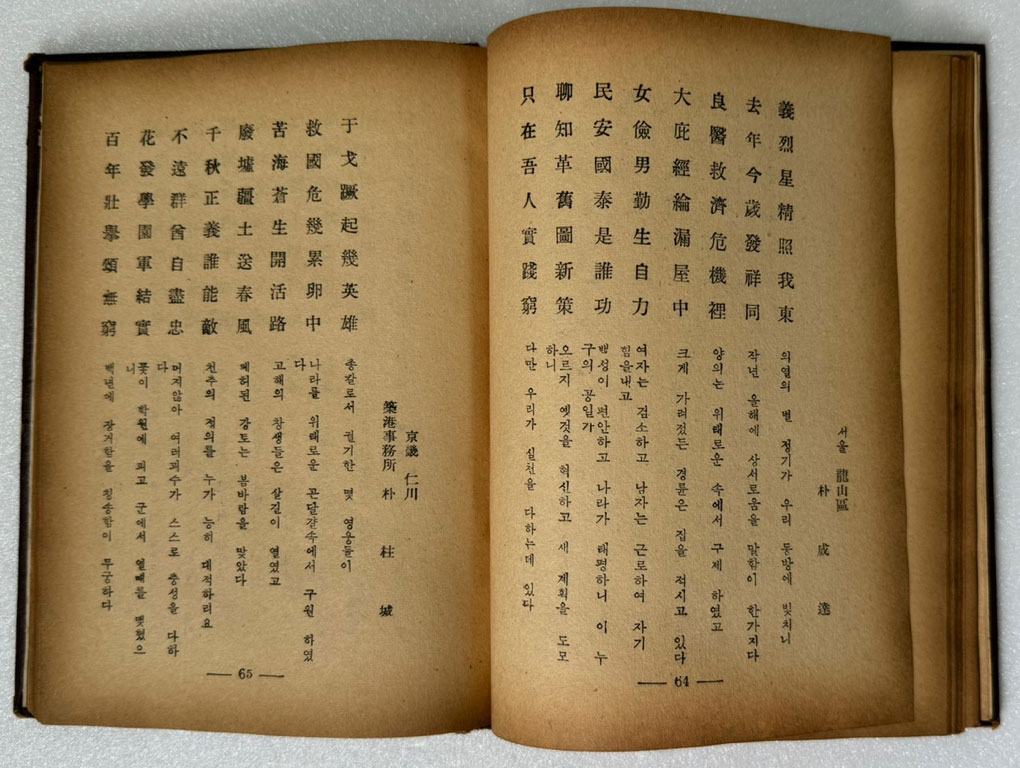 서울 龍山區
朴成達
義烈星精照我東
의열의 별 정기가 우리 동방에 빛치니
去年今歲發祥同
작년 올해에 상서로움을 말함이 한가지다
良醫救濟危機裡
양의는 위태로운 속에서 구제 하였고
大庇經綸漏屋中
크게 가려젔든 경륜은 집을 적시고 있다
女儉男勤生自力
여자는 검소하고 남자는 근로하여 자기
힘을내고
民安國泰是誰功
백성이 편안하고 나라가 태평하니 이 누
구의 공일가
聊知革舊圖新策
오르지 옛것을 혁신하고 새 계획을 도모
하니
只在吾人實踐窮
다만 우리가 실천을 다하는데 있다
— 64 —
京畿 仁川
築港事務所 朴柱城
于戈蹶起幾英雄
총칼로서 궐기한 몇 영웅들이
救國危幾累卵中
나라를 위태로운 곤달걀속에서 구원 하였
다
苦海蒼生開活路
고해의 창생들은 살길이 열였고
廢墟疆土送春風
폐허된 강토는 봄바람을 맞았다
千秋正義誰能敵
천추의 정의를 누가 능히 대적하리요
不遠群酋自盡忠
머지않아 여러괴수가 스스로 충성을 다하
다
花發學園軍結實
꽃이 학원에 피고 군에서 열매를 맺혔으
니
百年壯擧頌無窮
백년에 장거함을 칭송함이 무궁하다
— 65 —